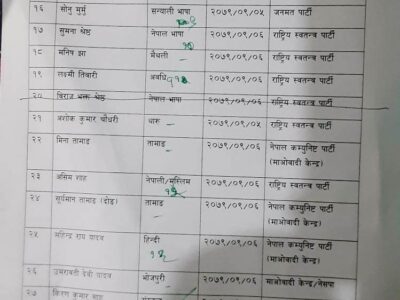 १६ सोनु मुर्मु सन्थाली भाषा २०७९/०९/०५ जनमत पार्टी
१७ सुमना श्रेष्ठ नेपाल भाषा २०७९/०९/०६ राष्ट्रिय स्वतन्त्र पार्टी
१८ मनिष झा मैथली २०७९/०९/०६ राष्ट्रिय स्वतन्त्र पार्टी
१९ लक्ष्मी तिवारी अवधि २०७९/०९/०६ राष्ट्रिय स्वतन्त्र पार्टी
२० बिराज भक्त श्रेष्ठ नेपाल भाषा २०७९/०९/०६ राष्ट्रिय स्वतन्त्र पार्टी
२१ अशोक कुमार चौधरी थारु २०७९/०९/०५ राष्ट्रिय स्वतन्त्र पार्टी
२२ मिना तामाङ तामाङ २०७९/०९/०६ नेपाल कम्युनिष्ट पार्टी
(माओवादी केन्द्र)
२३ असिम शाह नेपाली/मुस्लिम २०७९/०९/०६ राष्ट्रिय स्वतन्त्र पार्टी
२४ सूर्यमान तामाङ (दोङ) तामाङ २०७९/०९/०६ नेपाल कम्युनिष्ट पार्टी
(माओवादी केन्द्र)
२५ महिन्द्र राय यादव हिन्दी २०७९/०९/०६ नेपाल कम्युनिष्ट पार्टी
(माओवादी केन्द्र)
२६ उमरावती देवी यादव भोजपुरी २०७९/०९/०६ माओवादी केन्द्र/नेसपा
२७ किरण कुमार साह